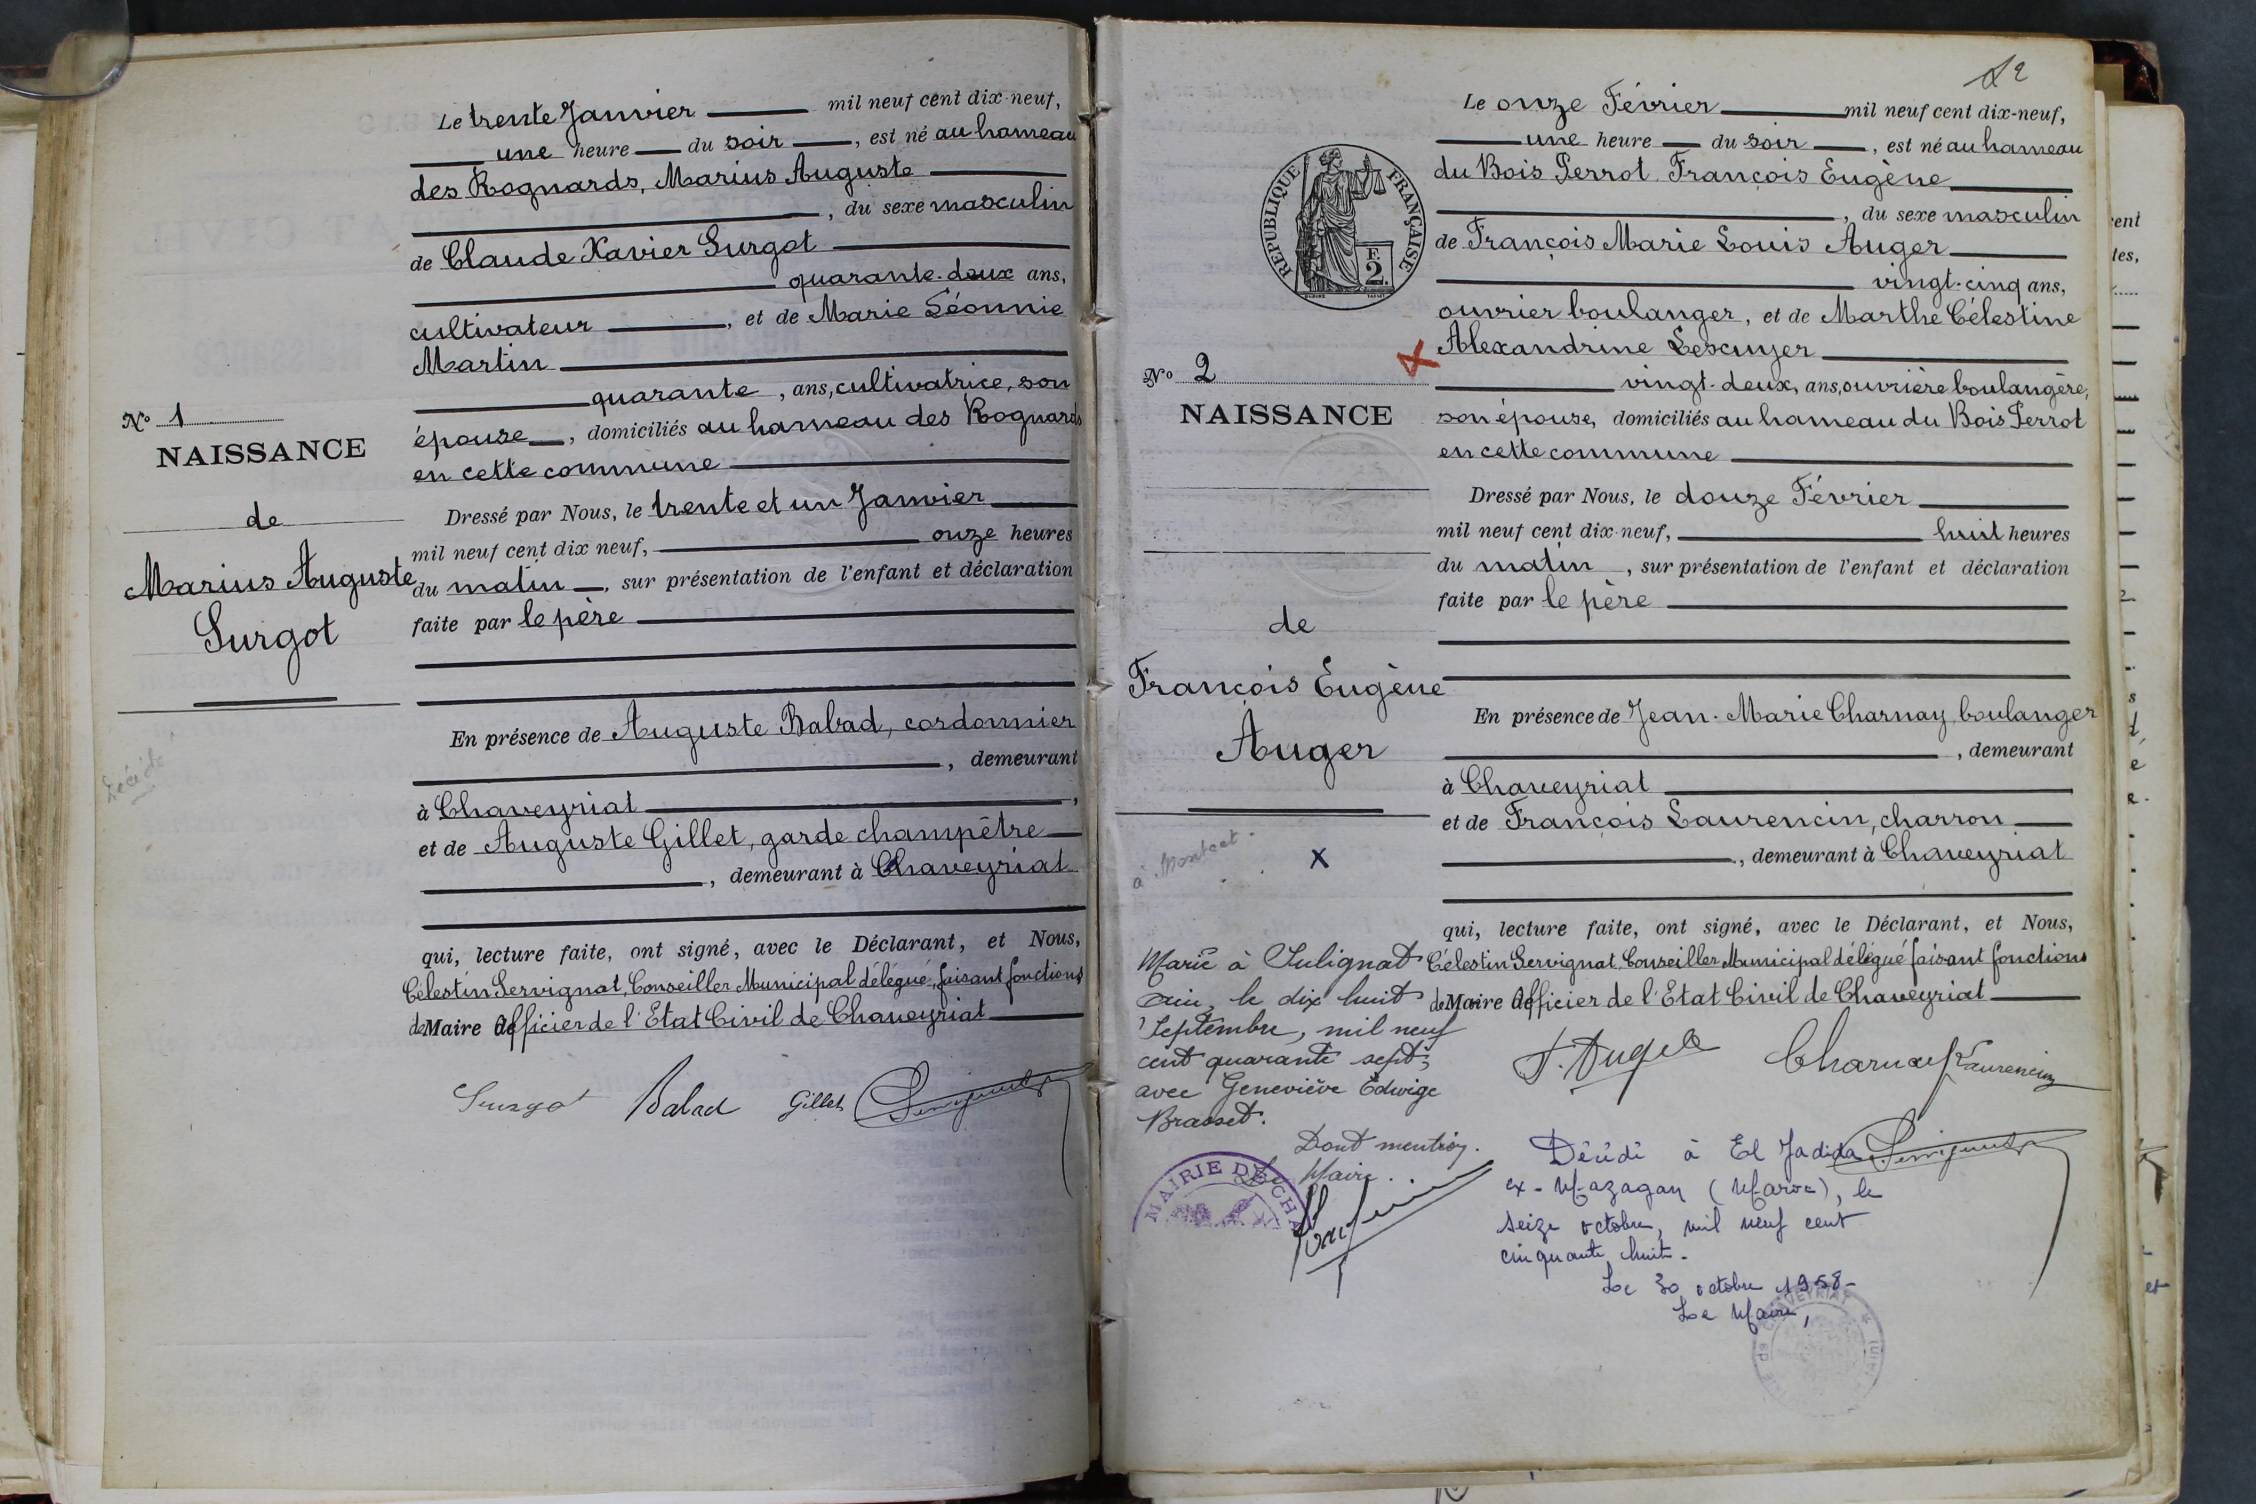 Le trente Janvier mil neuf cent dix-neuf,
une heure du soir, est né au hameau
des Rognards, Marius Auguste
, du sexe masculin
de Claude Xavier Surgot
quarante-deux ans,
cultivateur, et de Marie Léonnie
Martin
quarante, ans, cultivatrice, son
épouse, domiciliés au hameau des Rognards
en cette commune
Dressé par Nous, le trente et un Janvier
mil neuf cent dix neuf, onze heures
du matin, sur présentation de l'enfant et déclaration
faite par le père
En présence de Auguste Babad, cordonnier
, demeurant
à Chaveyriat,
et de Auguste Gillet, garde champêtre
, demeurant à Chaveyriat
qui, lecture faite, ont signé, avec le Déclarant, et Nous,
Célestin Servignat, Conseiller Municipal délégué, faisant fonctions
de Maire Officier de l'Etat Civil de Chaveyriat
Surgot Babad Gillet Servignat
No 1
NAISSANCE
de
Marius Auguste
Surgot
Décédé
12
Le onze Février mil neuf cent dix-neuf,
une heure du soir, est né au hameau
du Bois Perrot François Eugène
, du sexe masculin
de François Marie Louis Auger
vingt-cinq ans,
ouvrier boulanger, et de Marthe Célestine
Alexandrine Lescuyer
vingt-deux, ans, ouvrière boulangère,
son épouse, domiciliés au hameau du Bois Perrot
en cette commune
Dressé par Nous, le douze Février
mil neuf cent dix-neuf, huit heures
du matin, sur présentation de l'enfant et déclaration
faite par le père
En présence de Jean-Marie Charnay, boulanger
, demeurant
à Chaveyriat
et de François Laurencin, charron
, demeurant à Chaveyriat
qui, lecture faite, ont signé, avec le Déclarant, et Nous,
Célestin Servignat, Conseiller Municipal délégué faisant fonctions
de Maire Officier de l'Etat Civil de Chaveyriat
F. Auger Charnay F Laurencin
Servignat
RÉPUBLIQUE FRANÇAISE
F
2
No 2
NAISSANCE
de
François Eugène
Auger
à Montcet
X
Marié à Sulignat
Ain, le dix huit
Septembre, mil neuf
cent quarante sept,
avec Geneviève Edwige
Brasset.
Dont mention.
Le Maire.
MAIRIE DE CHA
Décédé à El Jadida
ex-Mazagan (Maroc), le
seize octobre, mil neuf cent
cinquante huit-
Le 30 octobre 1958-
Le Maire,